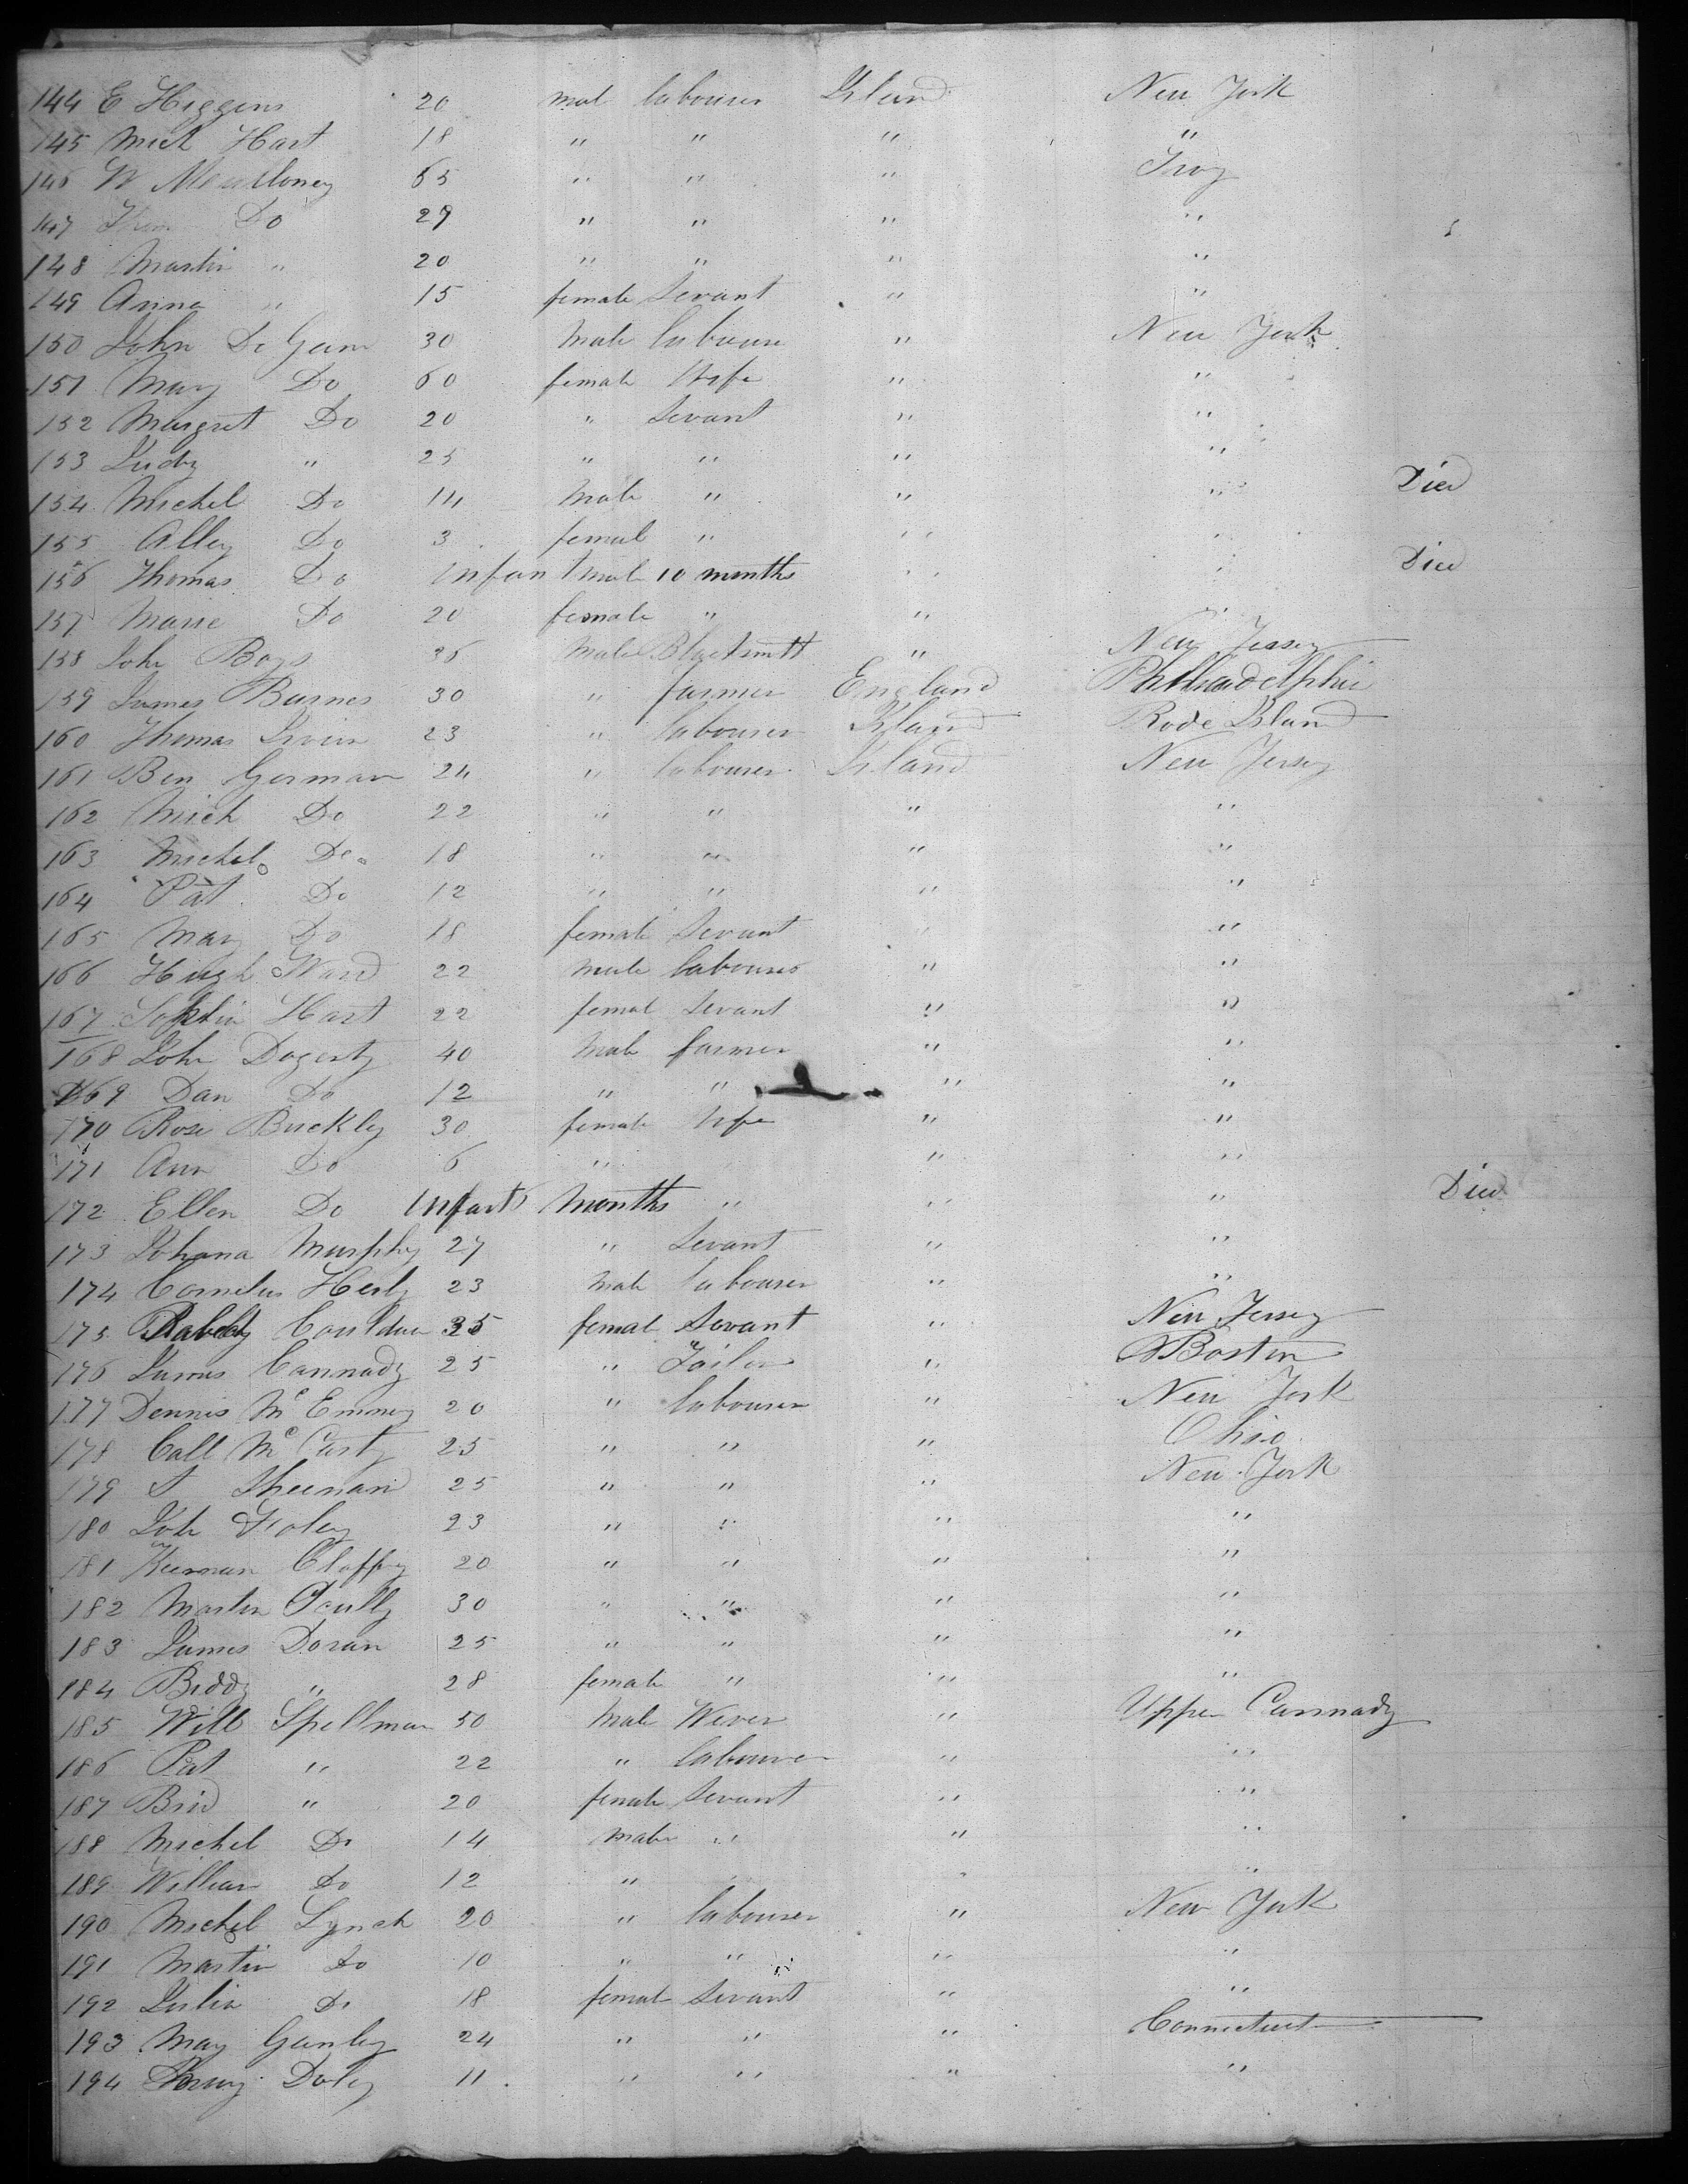 144 E Higgins 20 mal labourer Irland New York
145 Mich Hart 18 " " " "
146 W Mealloney 65 " " " Troy
147 Do 29 " " " "
148 Martin " 20 " " " "
149 Anna " 15 female Servant " "
150 John De Gam 30 Male labourer " New York
151 Mary Do 60 female Wife " "
152 Margret Do 20 " Servant " "
153 Judy " 25 " " " "
154 Michel Do 14 Male " " " Died
155 Alley Do 3 femal " " "
156 Thomas Do infant mal 10 months " " Died
157 Marie Do 20 female " " "
158 John Boys 36 Male Blacksmitt " New Jersey
159 James Burnes 30 " farmer England Philladelphia
160 Thomas 23 " labourer Irland Rode Island
161 Ben Gorman 24 " labourer Irland New Jersey
162 Mich Do 22 " " " "
163 Michel Do 18 " " " "
164 Pat Do 12 " " " "
165 Mary Do 18 female Servant " "
166 Hugh Ward 22 male labourer " "
167 Sophia Hart 22 femal Servant " "
168 John Dogerty 40 Male farmer " "
169 Dan Do 12 " " " "
170 Rose Buckley 30 female Wife " "
171 Ann Do 6 " " "
172 Ellen Do Infant months " " " Died
173 Johana Murphy 27 " Servant " "
174 Cornelus Herly 23 Male labourer " "
175 35 femal Servant " New Jersey
176 James Cannady 25 " Tailor " Boston
177 Dennis Mc Emney 20 " labourer " New York
178 Call Mc Carty 25 " " " Ohio
179 T Sheenan 25 " " " New York
180 Joh Foley 23 " " " "
181 Keernan Claffy 20 " " " "
182 Martin Scully 30 " " " "
183 James Doran 25 " " " "
184 Biddy " 28 female " " "
185 Will Spellman 50 Male Wever " Upper Cannady
186 Pat " 22 " labourer " "
187 Brid " 20 female Servant " "
188 Michel Do 14 male " " "
189 William Do 12 " " "
190 Michel Lynch 20 " labourer " New York
191 Martin Do 10 " " " "
192 Julia Do 18 femal Servant " "
193 May Ganley 24 " " " Connecticut
194 Doley 11 " " " "